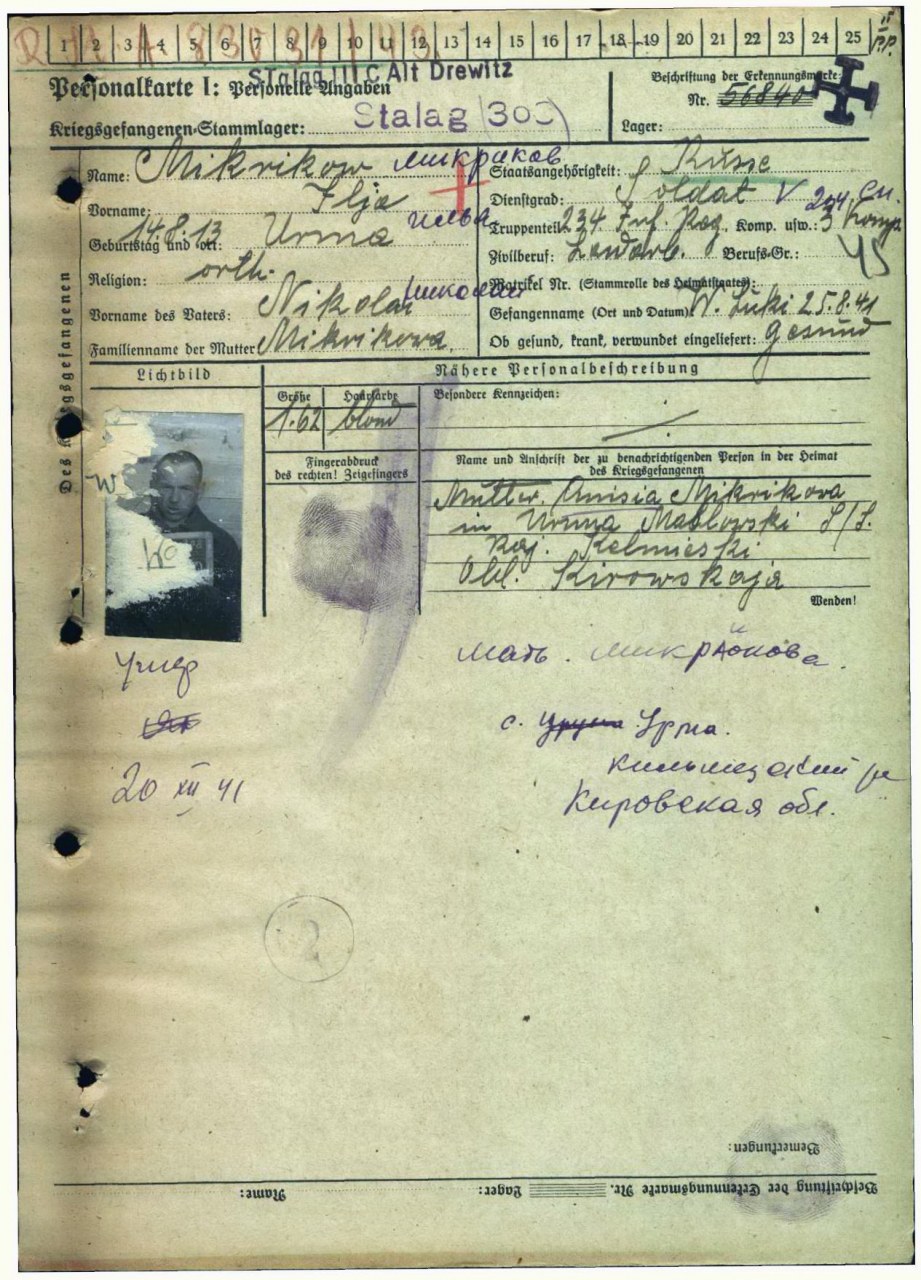 1 2 3 4 5 6 7 8 9 10 11 12 13 14 15 16 17 18 19 20 21 22 23 24 25
Stalag III C Alt Drewitz
Personalkarte I: Personelle Angaben
Beschriftung der Erkennungsmarke:
Nr. 56840
Kriegsgefangenen-Stammlager: Stalag 302
Lager:
Des Kriegsgefangenen
Name: Mikrikow микриков
Vorname: Ilja илья
Geburtstag und -ort: 14.8.13 Urma
Religion: orth.
Vorname des Vaters: Nikolai николай
Familienname der Mutter: Mikrikowa.
Staatsangehörigkeit: Russe
Dienstgrad: Soldat
Truppenteil: 234 Inf. Reg. Komp. usw.: 3 Komp.
Zivilberuf: Landarb. Berufs-Gr.:
Matrikel Nr. (Stammrolle des Heimatstaates):
Gefangennahme (Ort und Datum): W. Luki 25.8.41
Ob gesund, krank, verwundet eingeliefert: gesund
Lichtbild
Nähere Personalbeschreibung
Größe Haarfarbe Besondere Kennzeichen:
1.62 blond
Fingerabdruck
des rechten! Zeigefingers
Name und Anschrift der zu benachrichtigenden Person in der Heimat
des Kriegsgefangenen
Mutter. Anisia Mikrikova
in Urma Mablowski S/S.
Raj. Kelmieski
Obl. Kirowskaja
Wenden!
умер
20 XII 41
мать.
с. Урма.
Кильмезский
Кировская обл.
2
Bemerkungen:
Beschriftung der Erkennungsmarke Nr. Lager: Name: